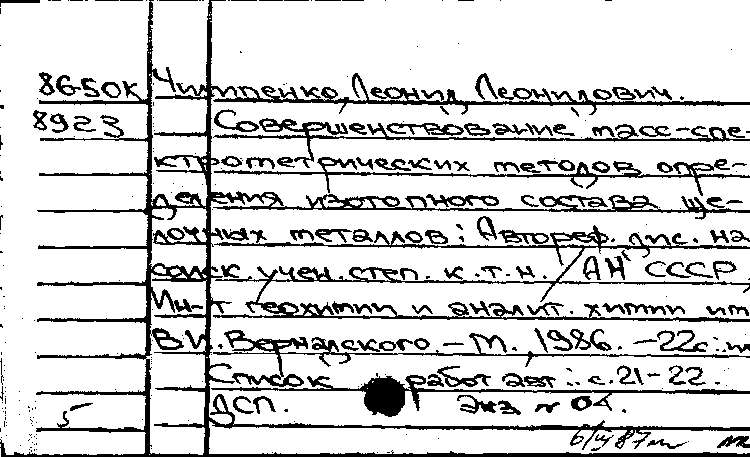 86-50К Чилипенко, Леонид Леонидович.
8923 Совершенствование масс-спе-
ктрометрических методов опре-
деления изотопного состава ще-
лочных металлов: Автореф. дис. на
соиск. учен. степ. к.т.н. / АН СССР,
Ин-т геохимии и аналит. химии им
В.И. Вернадского. - М., 1986. - 22с.: ил
Список работ авт.: с. 21-22.
5 ДСП. Экз № 04.